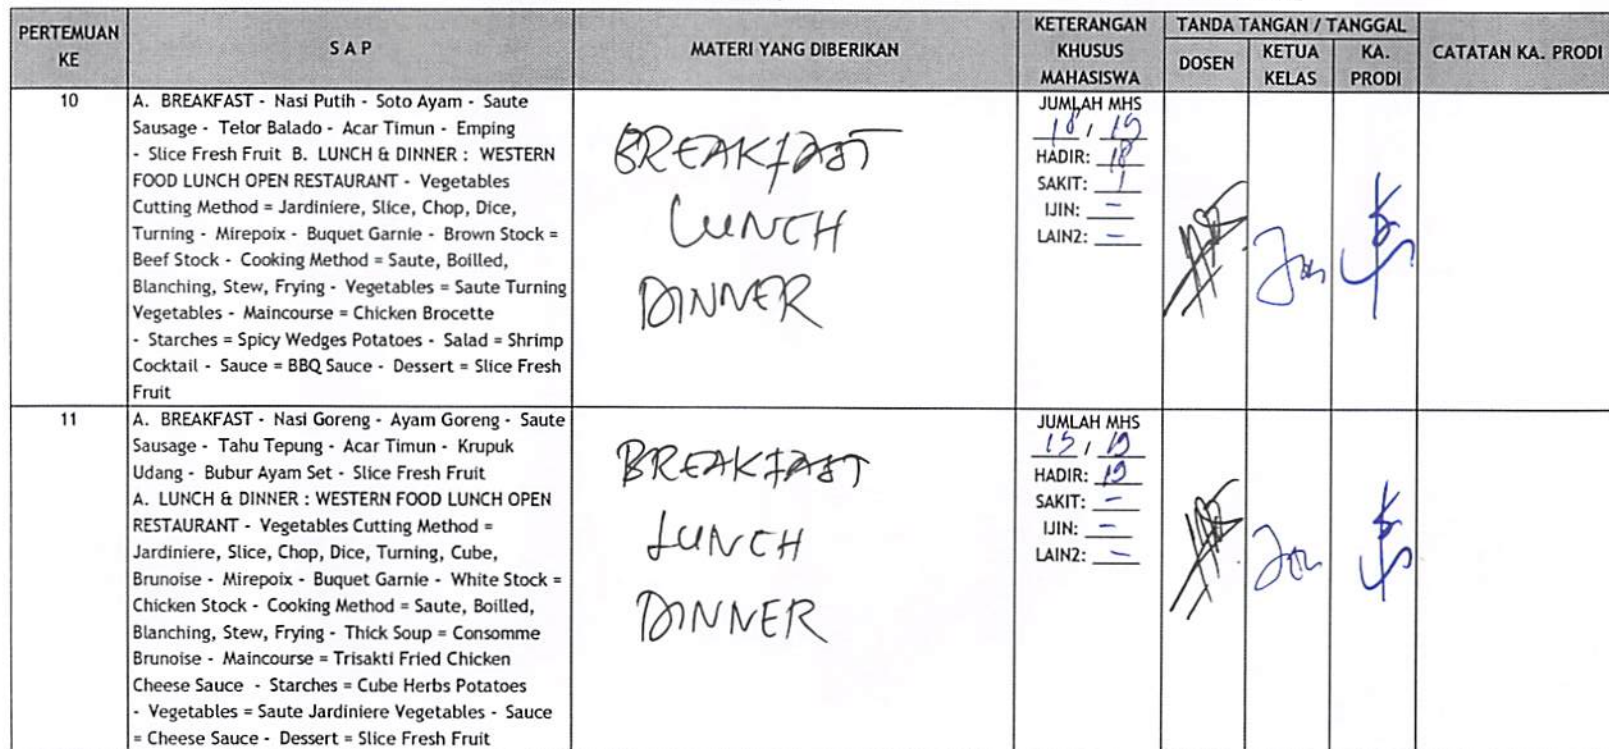 PERTEMUAN KE
S A P
MATERI YANG DIBERIKAN
KETERANGAN KHUSUS MAHASISWA
TANDA TANGAN / TANGGAL
DOSEN
KETUA KELAS
KA. PRODI
CATATAN KA. PRODI
10
A. BREAKFAST - Nasi Putih - Soto Ayam - Saute
Sausage - Telor Balado - Acar Timun - Emping
- Slice Fresh Fruit B. LUNCH & DINNER : WESTERN
FOOD LUNCH OPEN RESTAURANT - Vegetables
Cutting Method = Jardiniere, Slice, Chop, Dice,
Turning - Mirepoix - Buquet Garnie - Brown Stock =
Beef Stock - Cooking Method = Saute, Boilled,
Blanching, Stew, Frying - Vegetables = Saute Turning
Vegetables - Maincourse = Chicken Brocette
- Starches = Spicy Wedges Potatoes - Salad = Shrimp
Cocktail - Sauce = BBQ Sauce - Dessert = Slice Fresh
Fruit
BREAKFAST
LUNCH
DINNER
JUMLAH MHS
18 / 19
HADIR: 18
SAKIT: 1
IJIN: -
LAIN2: -
11
A. BREAKFAST - Nasi Goreng - Ayam Goreng - Saute
Sausage - Tahu Tepung - Acar Timun - Krupuk
Udang - Bubur Ayam Set - Slice Fresh Fruit
A. LUNCH & DINNER : WESTERN FOOD LUNCH OPEN
RESTAURANT - Vegetables Cutting Method =
Jardiniere, Slice, Chop, Dice, Turning, Cube,
Brunoise - Mirepoix - Buquet Garnie - White Stock =
Chicken Stock - Cooking Method = Saute, Boilled,
Blanching, Stew, Frying - Thick Soup = Consomme
Brunoise - Maincourse = Trisakti Fried Chicken
Cheese Sauce - Starches = Cube Herbs Potatoes
- Vegetables = Saute Jardiniere Vegetables - Sauce
= Cheese Sauce - Dessert = Slice Fresh Fruit
BREAKFAST
LUNCH
DINNER
JUMLAH MHS
19 / 19
HADIR: 19
SAKIT: -
IJIN: -
LAIN2: -